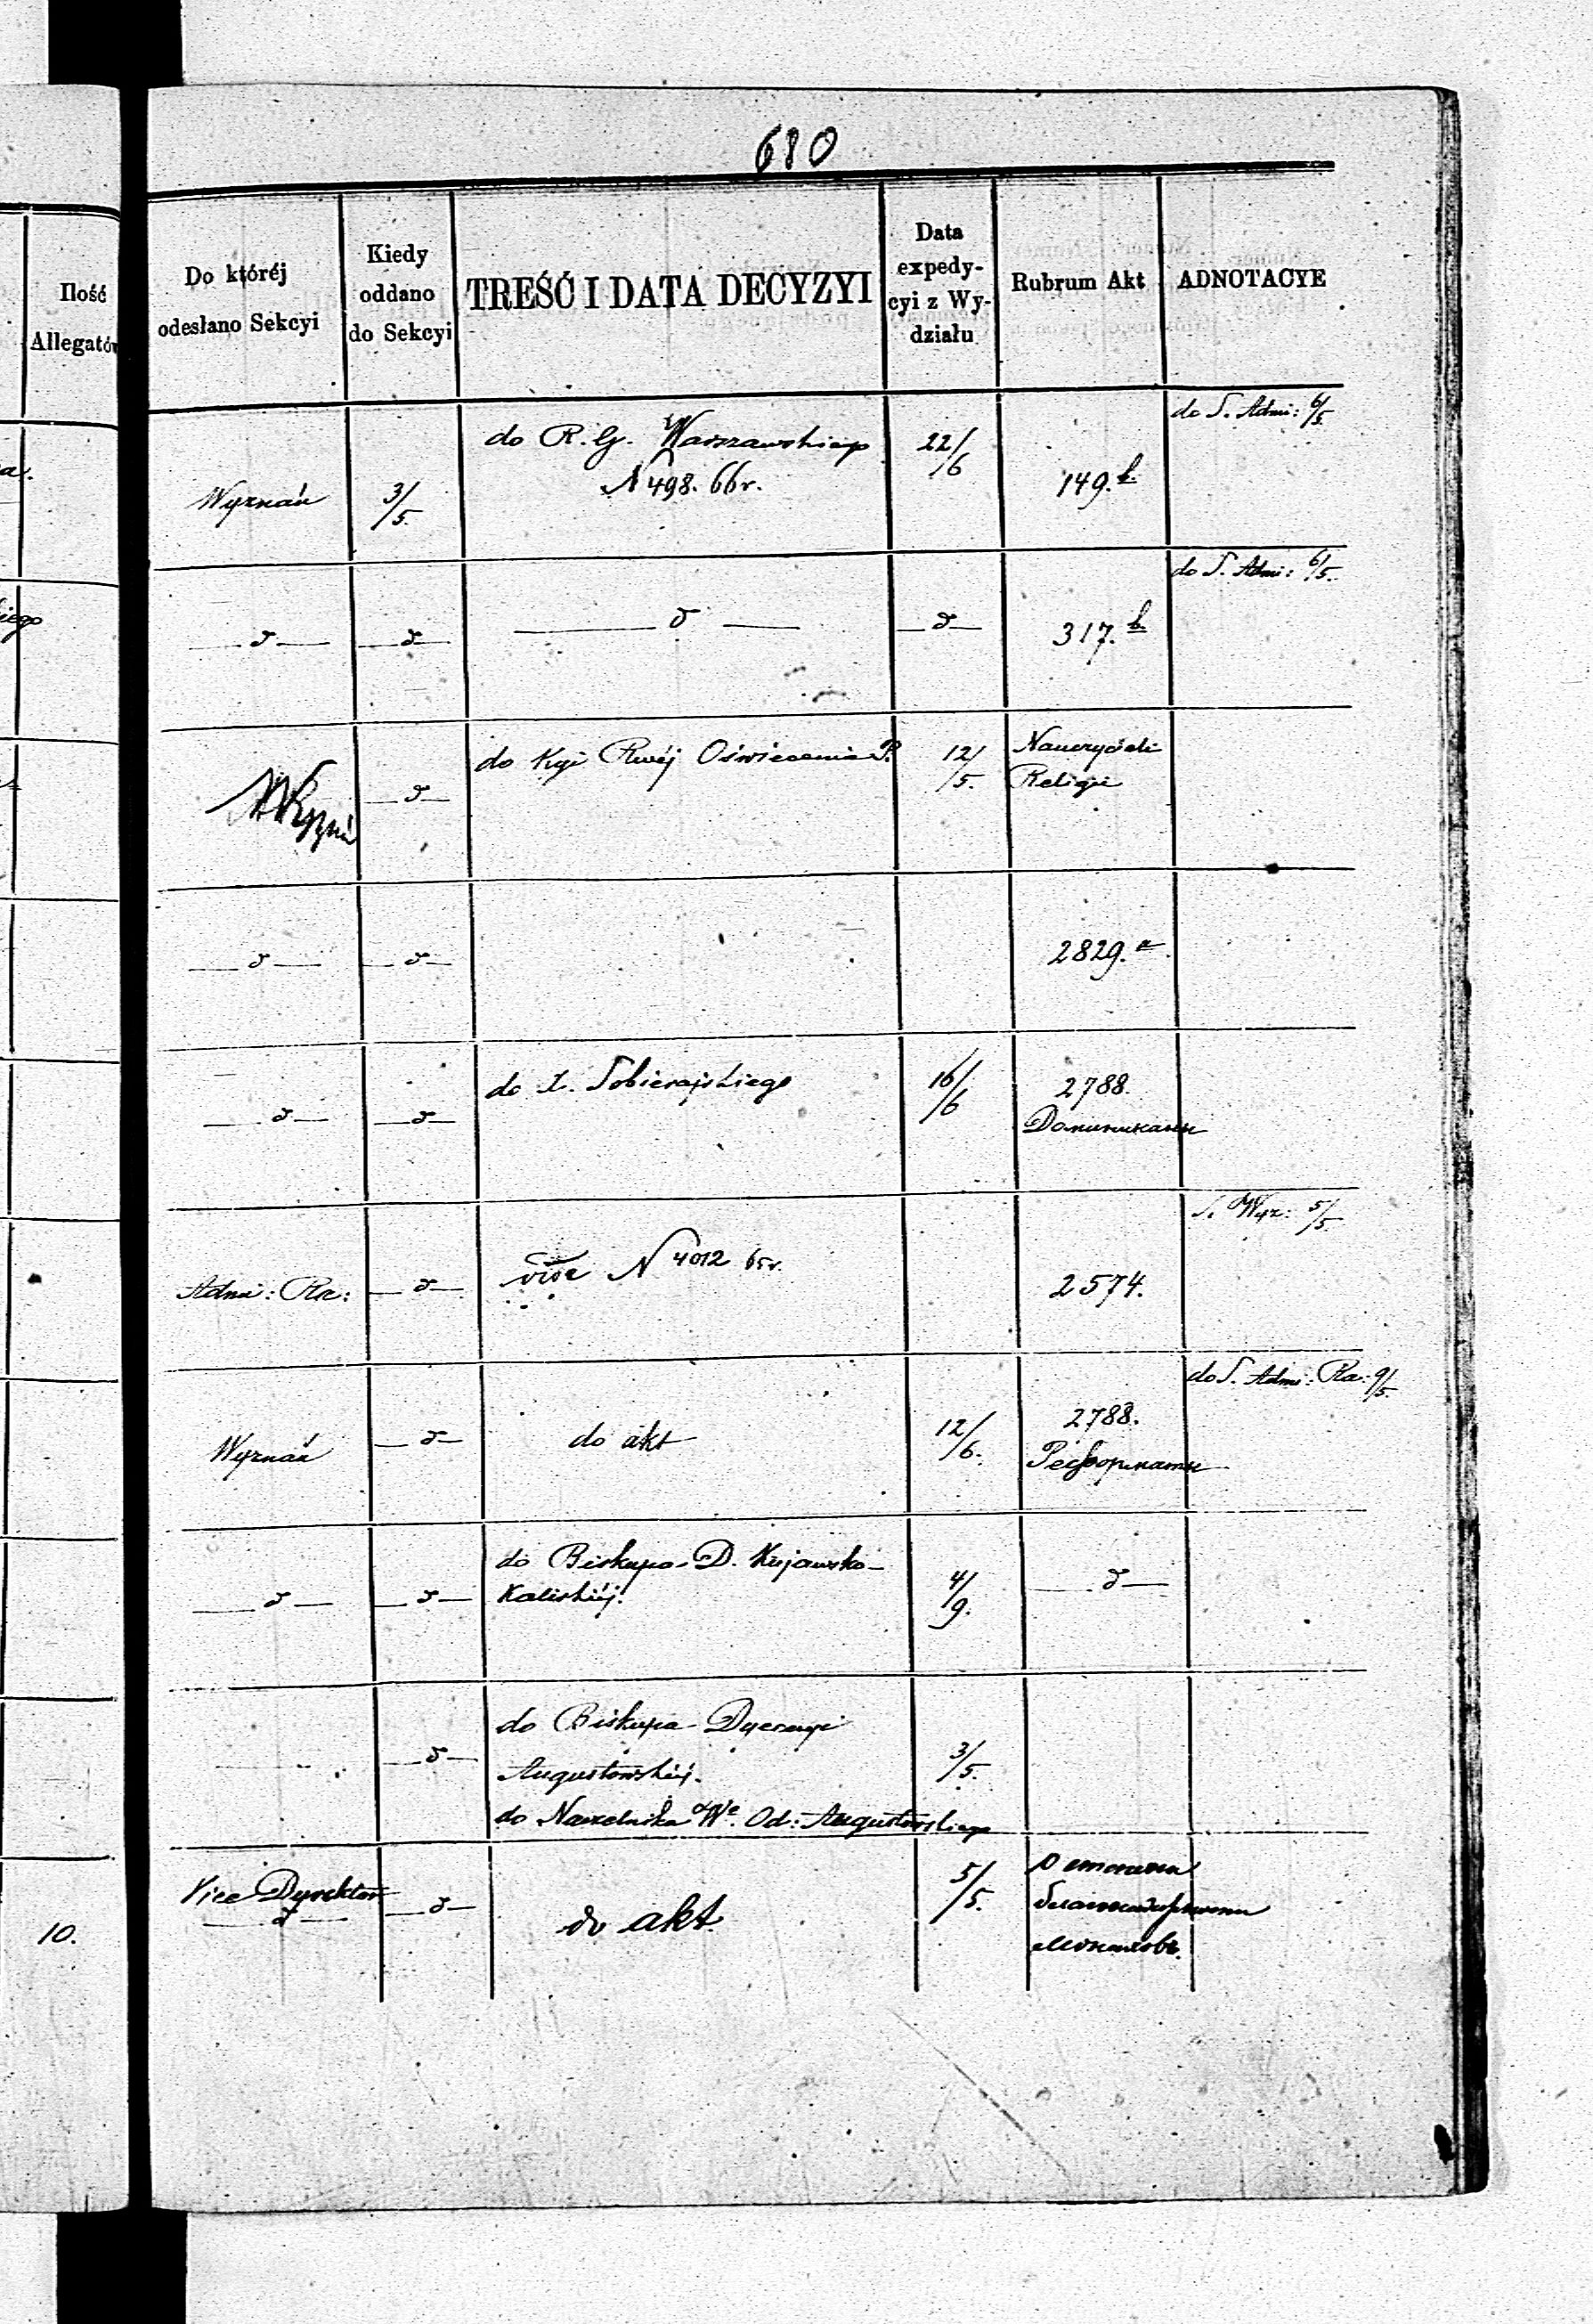 680
Ilość
Allegatów
Do któréj
odesłano Sekcyi
Kiedy
oddano
do Sekcyi
TREŚĆ I DATA DECYZYI
Data
expedy-
cyi z Wy-
działu
Rubrum Akt
ADNOTACYE
Wyznań
3/5.
do R. G. Warszawskiego
N 498. 66r.
22/6
149. b.
do S. Admi: 6/5.
— d —
— d —
— d —
— d —
317. b.
do S. Admi: 6/5.
Wyznań
— d —
do Kyi Rwéj Oświecenia P.
12/5.
Nauczyciele
Religii
— d —
— d —
2829. a.
— d —
— d —
do X. Sobierajskiego
16/6
2788.
Доминиканы
Admi: Ra:
— d —
vide N 4012 65r.
2574.
S. Wyz: 5/5.
Wyznań
— d —
do akt
12/6.
2788.
Реформаты
do S. Admi: Ra: 9/5.
— d —
— d —
do Biskupa D. Kujawsko-
Kaliskiéj.
4/9.
— d —
— d —
do Biskupa Dyecezyi
Augustowskiéj.
do Naczelnika We. Od: Augustowskiego
3/5.
10.
Vice Dyrektor
— d —
— d —
do akt.
5/5.